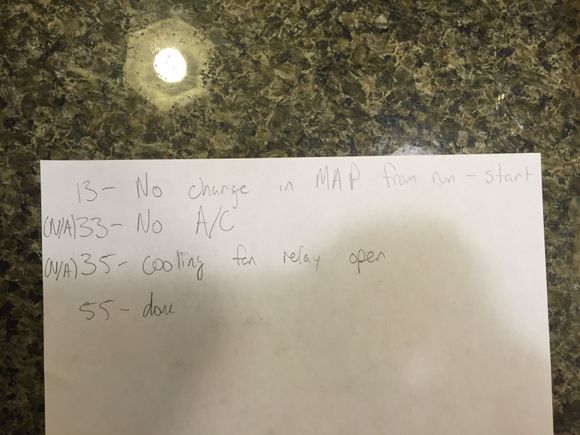 13- No change in MAP from run - start
(N/A) 33- No A/C
(N/A) 35- cooling fan relay open
55- done